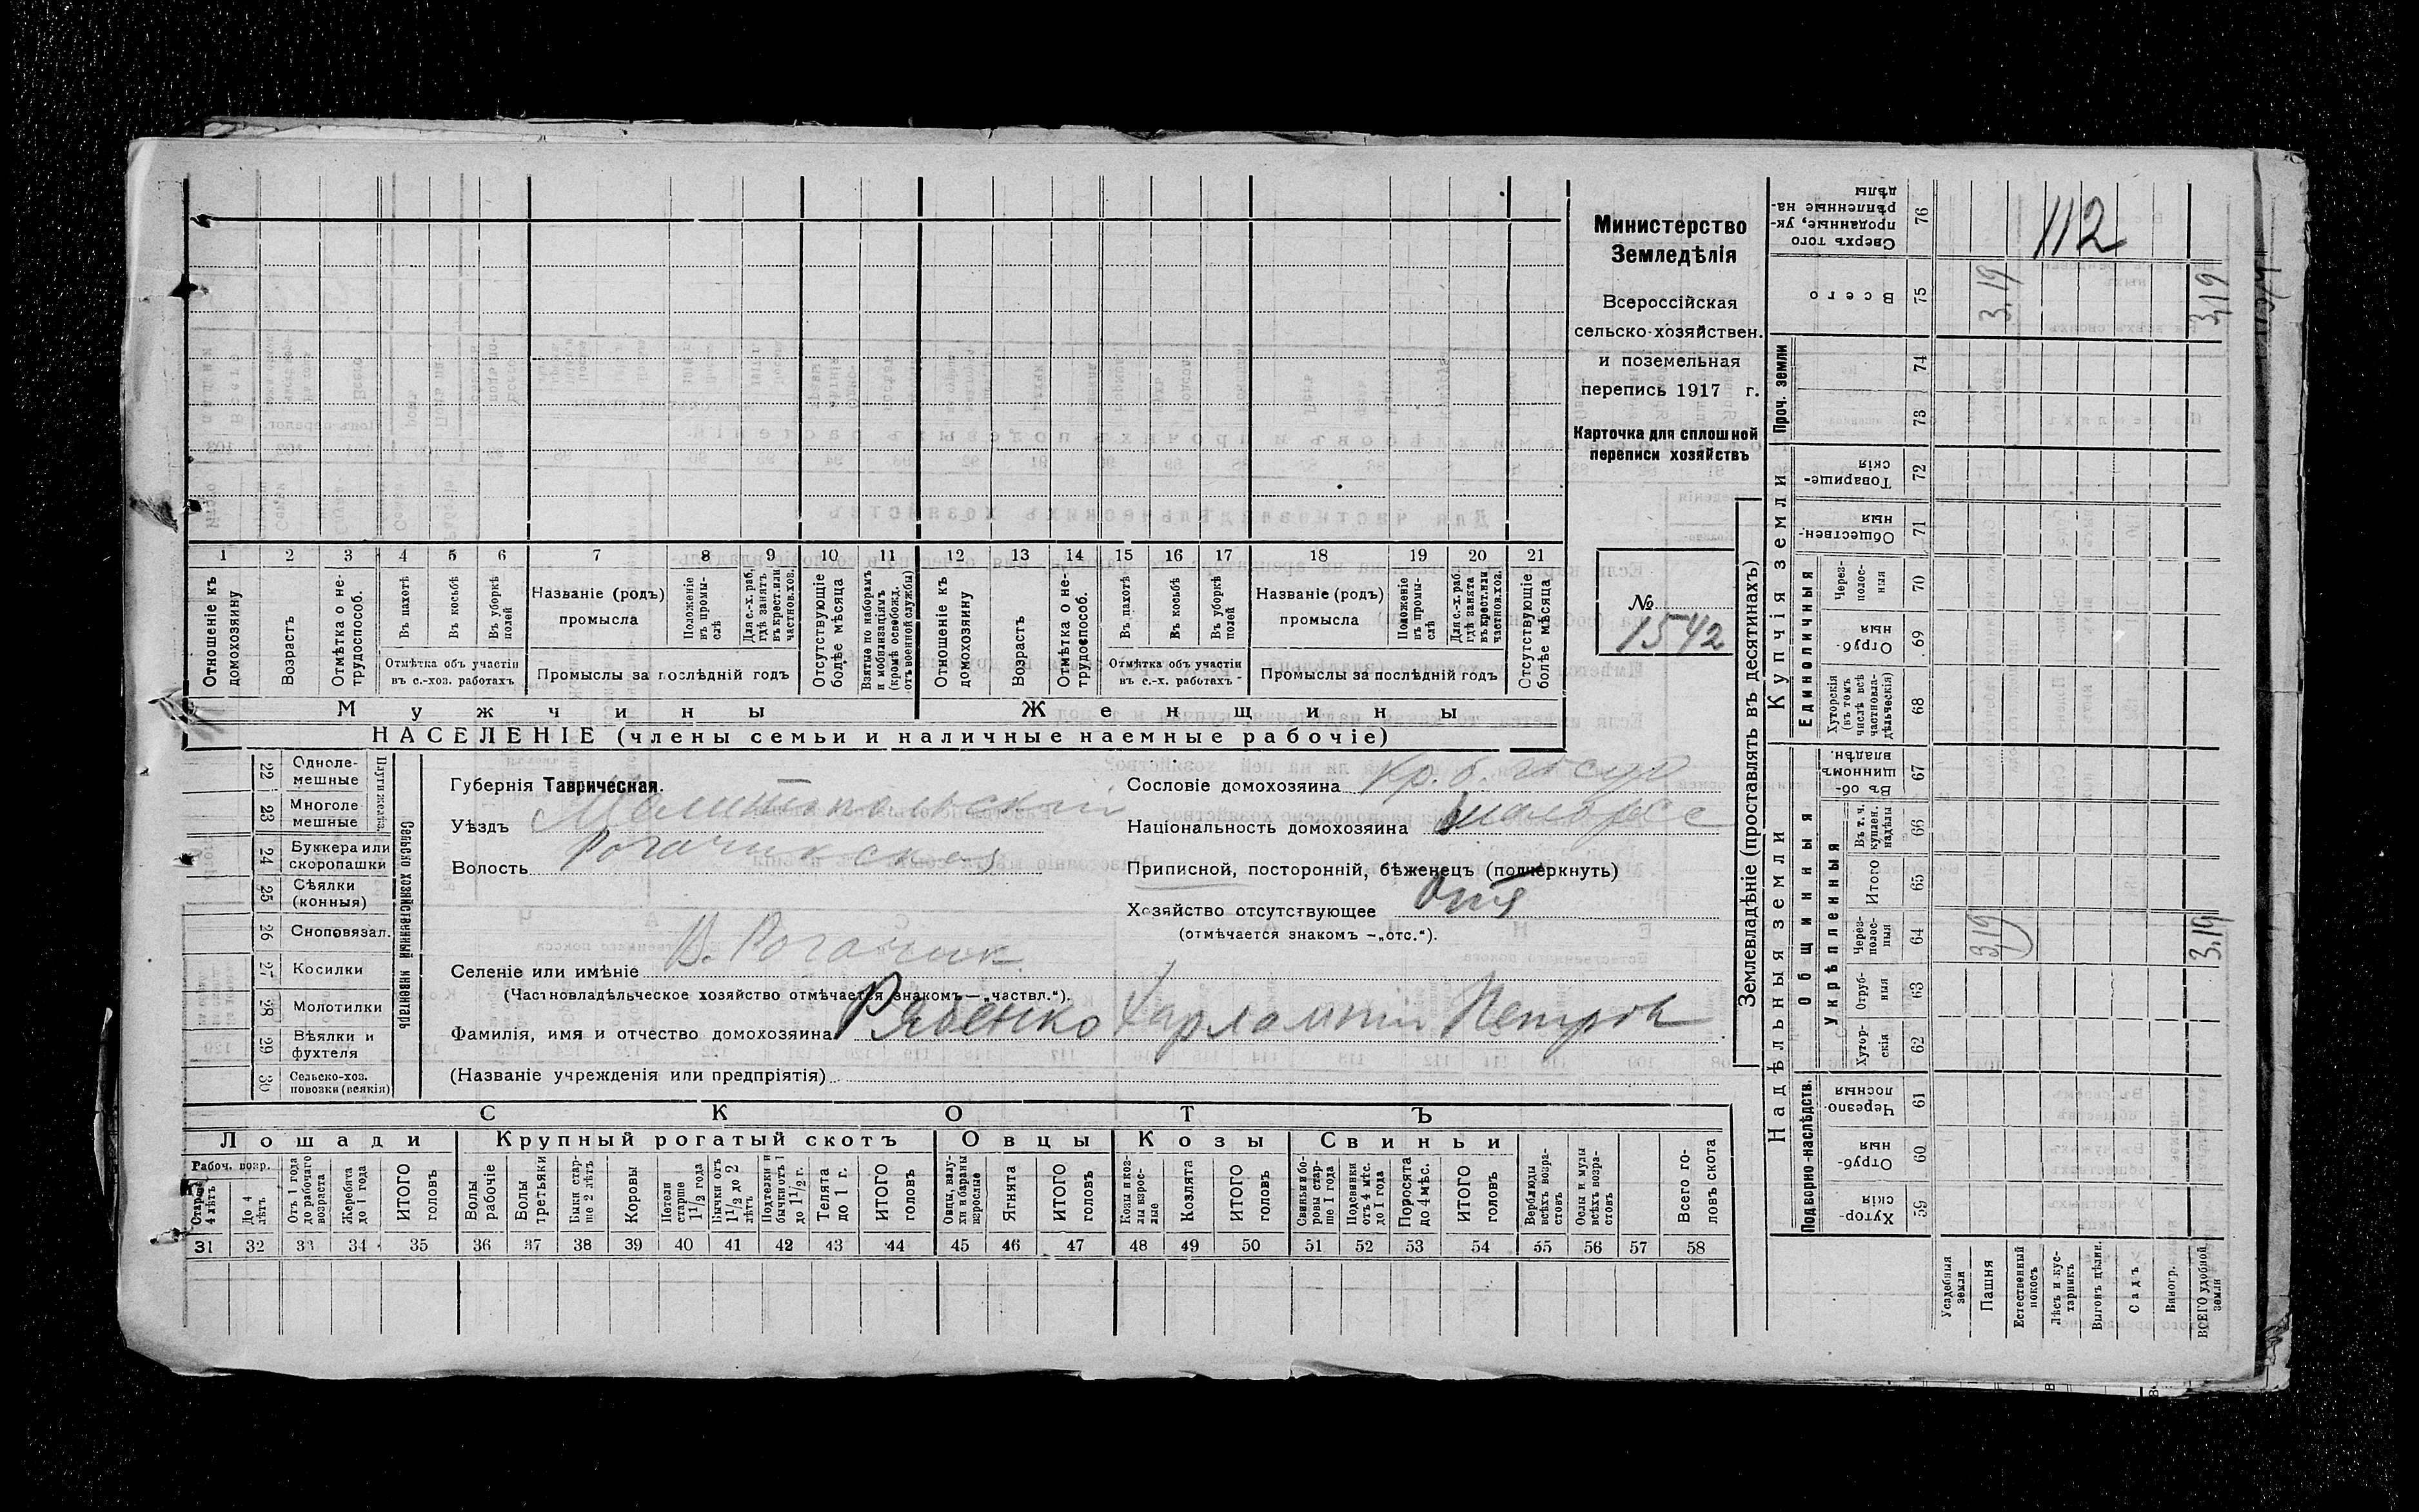 Министерство
Земледѣлія
Всероссійская
сельско-хозяйствен.
и поземельная
перепись 1917 г.
Карточка для сплошной
переписи хозяйствъ
№
1542
1 2 3 4 5 6 7 8 9 10 11 12 13 14 15 16 17 18 19 20 21
Отношеніе къ домохозяину
Возрастъ
Отмѣтка о не-трудоспособ.
Въ пахотѣ
Въ косьбѣ
Въ уборкѣ полей
Отмѣтка объ участіи
въ с.-хоз. работахъ
Названіе (родъ)
промысла
Положеніе въ промы-слѣ
Для с.-х. раб. гдѣ занятъ въ крест. или частнов. хоз.
Промыслы за послѣдній годъ
Отсутствующіе болѣе мѣсяца
Взятые по наборамъ и мобилизаціямъ (кромѣ освобожд. отъ военной службы)
Отношеніе къ домохозяину
Возрастъ
Отмѣтка о не-трудоспособ.
Въ пахотѣ
Въ косьбѣ
Въ уборкѣ полей
Отмѣтка объ участіи
въ с.-х. работахъ
Названіе (родъ)
промысла
Положеніе въ промы-слѣ
Для с.-х. раб. гдѣ занята въ крест. или частнов. хоз.
Промыслы за послѣдній годъ
Отсутствующіе болѣе мѣсяца
Мужчины
Женщины
НАСЕЛЕНІЕ (члены семьи и наличные наемные рабочіе)
22 Одноле-мешные
23 Многоле мешные
24 Буккера или скоропашки
25 Сѣялки (конныя)
26 Сноповязал.
27 Косилки
28 Молотилки
29 Вѣялки и фухтеля
30 Сельско-хоз. повозки (всякія)
Сельско хозяйственный инвентарь
Губернія Таврическая.
Уѣздъ Мелитопольский
Волость Рогачикская
Селеніе или имѣніе В. Рогачик
(Частновладѣльческое хозяйство отмѣчается знакомъ—„частвл.“).
Фамилія, имя и отчество домохозяина Рябенко Харлампий Петров
(Названіе учрежденія или предпріятія)
Сословіе домохозяина кр. б. госуд
Національность домохозяина малорос
Приписной, посторонній, бѣженецъ (подчеркнуть)
Хозяйство отсутствующее
(отмѣчается знакомъ —„отс.“).
СКОТЪ
Лошади
Крупный рогатый скотъ
Овцы
Козы
Свиньи
Рабоч. возр.
Старше 4 лѣтъ
До 4 лѣтъ
Отъ 1 года до рабочаго возраста
Жеребята до 1 года
ИТОГО головъ
Волы рабочіе
Волы третьяки
Быки стар-ше 2 лѣтъ
Коровы
Нетели старше 1½ года
Бычки отъ 1½ до 2 лѣтъ
Подтелки и бычки отъ 1 до 1½ г.
Телята до 1 г.
ИТОГО головъ
Овцы, валу-хи и бараны взрослые
Ягнята
ИТОГО головъ
Козы и коз-лы взрос-лые
Козлята
ИТОГО головъ
Свиньи и бо-ровы стар-ше 1 года
Подсвинки отъ 4 мѣс. до 1 года
Поросята до 4 мѣс.
ИТОГО головъ
Верблюды всѣхъ возра-стовъ
Ослы и мулы всѣхъ возра-стовъ
Всего го-ловъ скота
31 32 33 34 35 36 37 38 39 40 41 42 43 44 45 46 47 48 49 50 51 52 53 54 55 56 57 58
Землевладѣніе (проставлять въ десятинахъ)
Надѣльныя земли
Купчія земли
Проч. земли
Подворно-наслѣдств.
Общинныя
Укрѣпленныя
Единоличныя
59 Хутор-скія
60 Отруб-ныя
61 Черезпо-лосныя
62 Хутор-скія
63 Отруб-ныя
64 Черес-полос-ныя
65 Итого
66 Въ т. ч. куплен. надѣлы
67 Въ об-щинномъ владѣн.
68 Хуторскія (въ томъ числѣ всѣ частновла-дѣльческія)
69 Отруб-ныя
70 Через-полос-ныя
71 Обществен-ныя
72 Товарище-скія
73
74
75 Всего
76 Сверхъ того проданные, ук-рѣпленные на-дѣлы
Усадебныя земля
Пашня
Естественный покосъ
Лѣсъ и кус-тарникъ
Выгонъ, цѣлин.
Садъ
Виногр.
ВСЕГО удобной земли
112
3.19
3.19
319
3.19